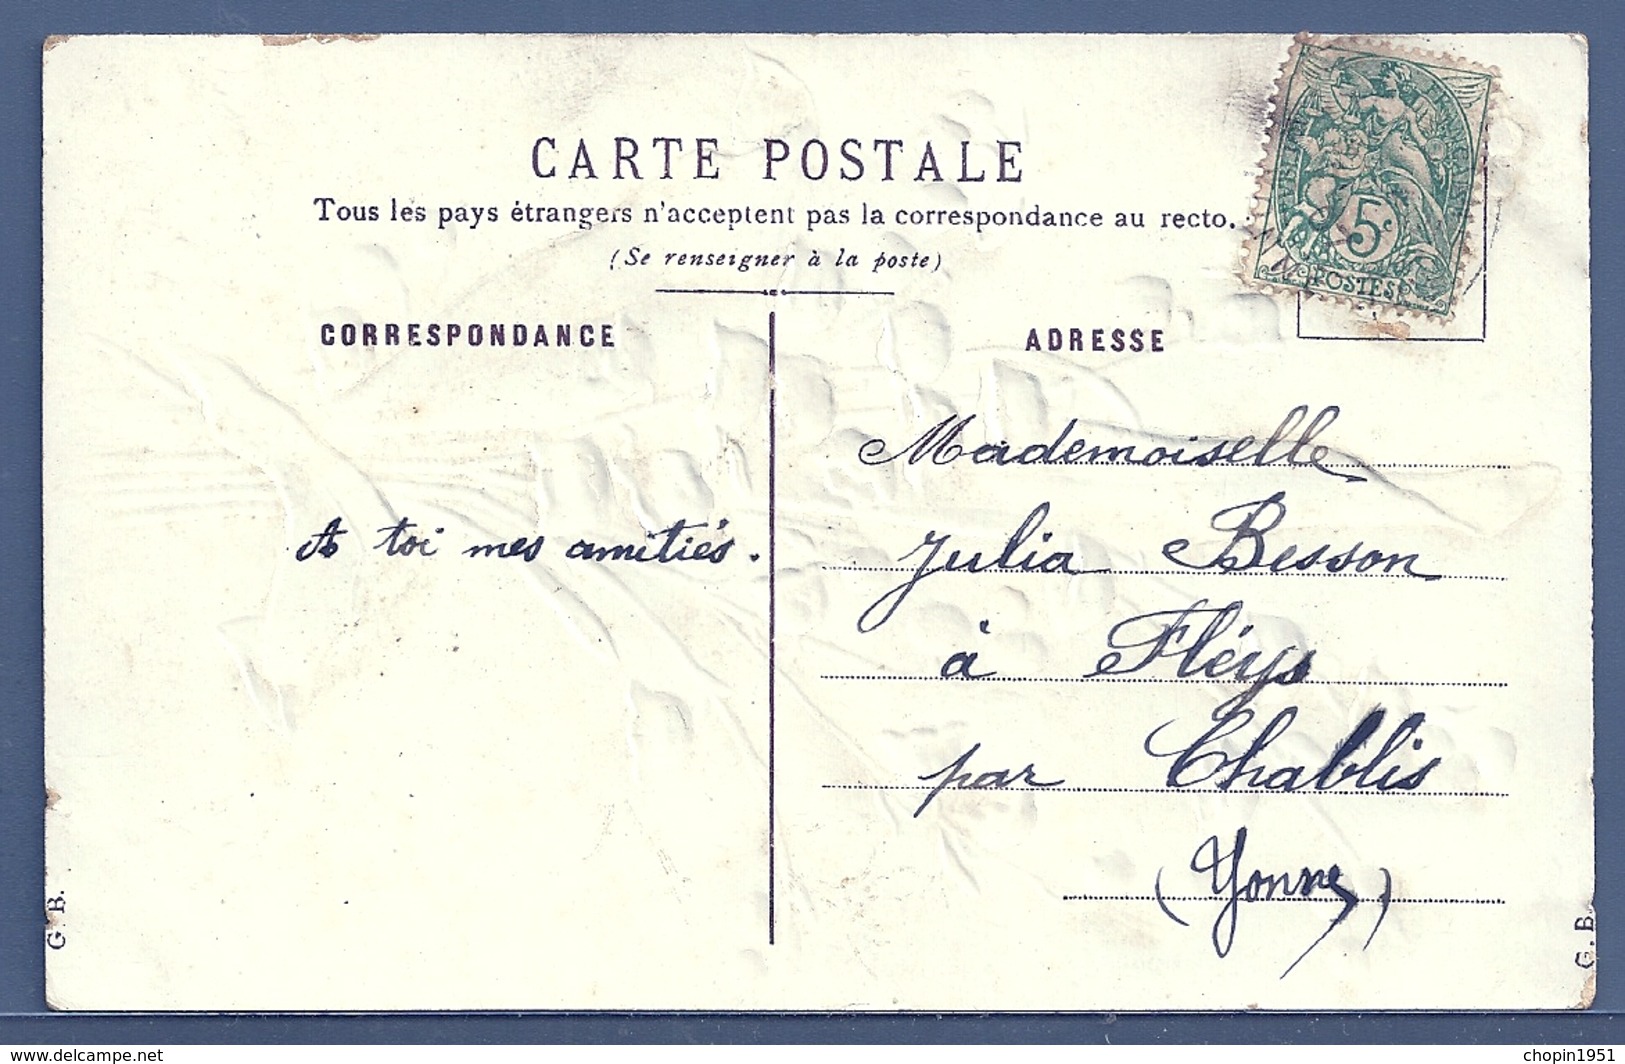 CARTE POSTALE
Tous les pays étrangers n'acceptent pas la correspondance au recto.
(Se renseigner à la poste)
CORRESPONDANCE
ADRESSE
5c
POSTES
Mademoiselle
A toi mes amitiés.
Julia Besson
à Fléys
par Chablis
(Yonne)
G. B.
G. B.
https://www.delcampe.net
chopin1951